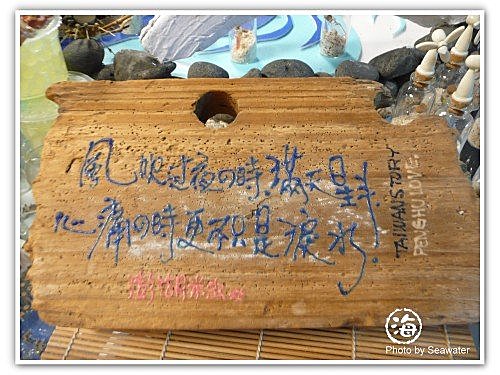 風吹过夜の時滿天星斗
心痛の時更不只是淚水!
澎湖
TAIWAN'STORY
PENGHU.LOVE.
海
Photo by Seawater